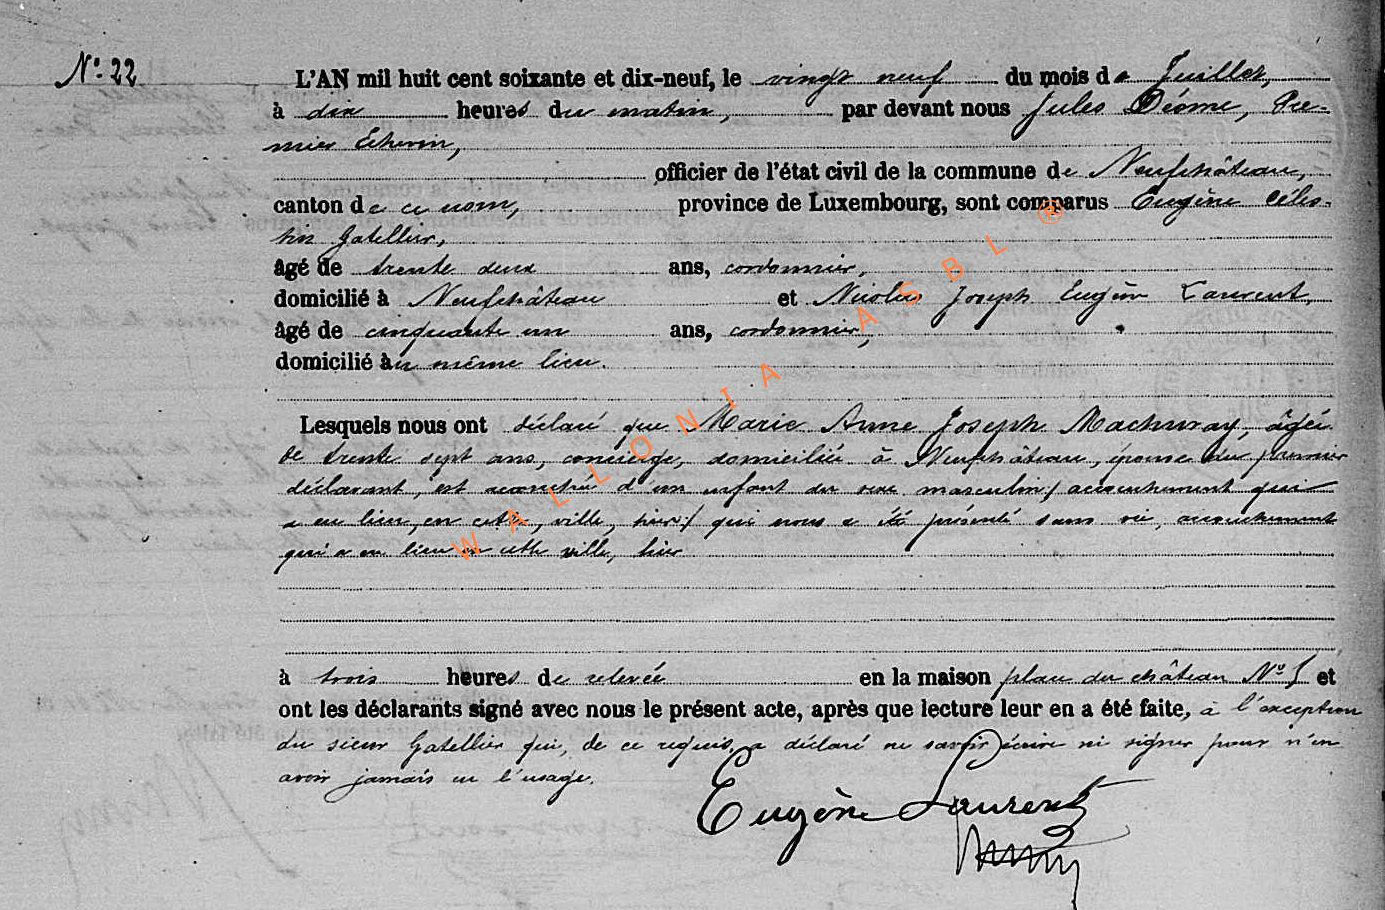 N° 22
L'AN mil huit cent soixante et dix-neuf, le vingt neuf du mois de Juillet,
à dix heures du matin, par devant nous Jules Déome, Pre-
mier Echevin,
officier de l'état civil de la commune de Neufchâteau,
canton de ce nom, province de Luxembourg, sont comparus Eugène Céles-
tin Gatellier,
âgé de trente deux ans, cordonnier,
domicilié à Neufchâteau et Nicolas Joseph Eugène Laurent,
âgé de cinquante un ans, cordonnier,
domicilié au même lieu.
Lesquels nous ont déclaré que Marie Anne Joseph Machuray, âgée
de trente sept ans, concierge, domiciliée à Neufchâteau, épouse du premier
déclarant, est accouchée d'un enfant du sexe masculin / accouchement qui
a eu lieu, en cette, ville, hier / qui nous a été présenté sans vie, accouchement
qui a eu lieu en cette ville, hier
à trois heures de relevée en la maison place du château N° 5 et
ont les déclarants signé avec nous le présent acte, après que lecture leur en a été faite, à l'exception
du sieur Gatellier qui, de ce requis, a déclaré ne savoir écrire ni signer pour n'en
avoir jamais eu l'usage.
Eugène Laurent
WALLONIA ASBL ®